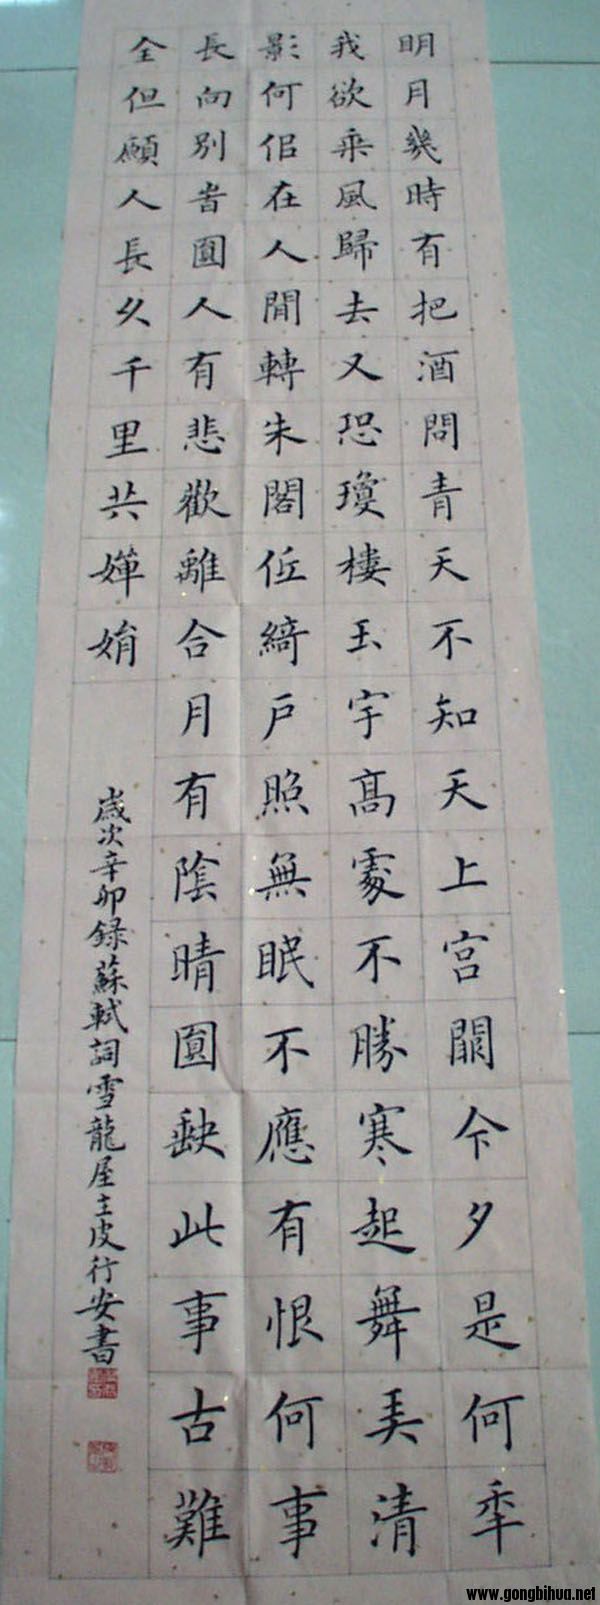 明月幾時有把酒問青天不知天上宮闕今夕是何年
我欲乘風歸去又恐瓊樓玉宇高處不勝寒起舞弄清
影何似在人間轉朱閣低綺戶照無眠不應有恨何事
長向別時圓人有悲歡離合月有陰晴圓缺此事古難
全但願人長久千里共嬋娟
歲次辛卯錄蘇軾詞雪龍屋主皮行安書
www.gongbihua.net